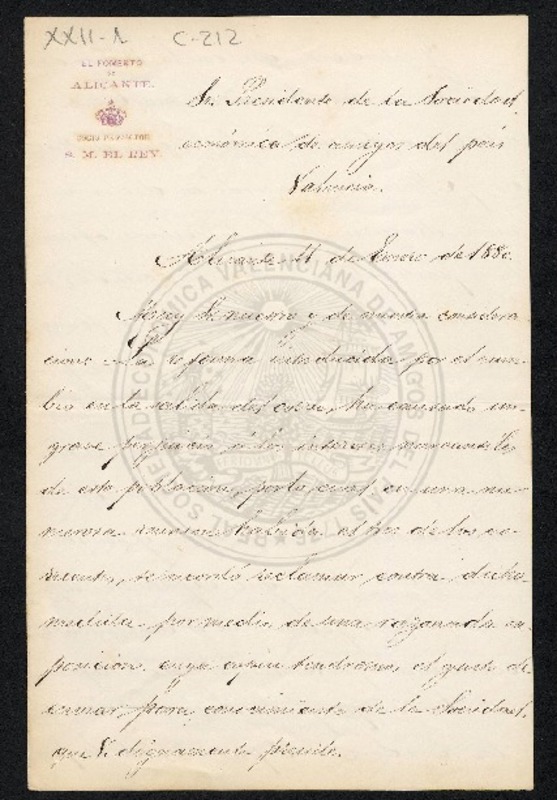 XXII-1 C-212
EL FOMENTO
DE
ALICANTE.
SOCIO PROTECTOR
S. M. EL REY.
Sr. Presidente de la Sociedad
económica de amigos del país
Valencia.
Alicante 11 de Enero de 1880.
Muy Sr. nuestro y de nuestra considera
cion: La reforma introducida por el cam-
bio en la salida del correo, ha causado un
grave perjuicio á los intereses mercantiles
de esta poblacion, por lo cual en una nu-
merosa reunion habida el de los co-
rrientes, se acordó reclamar contra dicha
medida por medio de una razonada es-
posicion cuya copia tendremos el gusto de
enviar, para conocimiento de la Sociedad,
que V. dignamente preside.
REAL SOCIEDAD ECONOMICA VALENCIANA DE AMIGOS DEL PAIS 1776